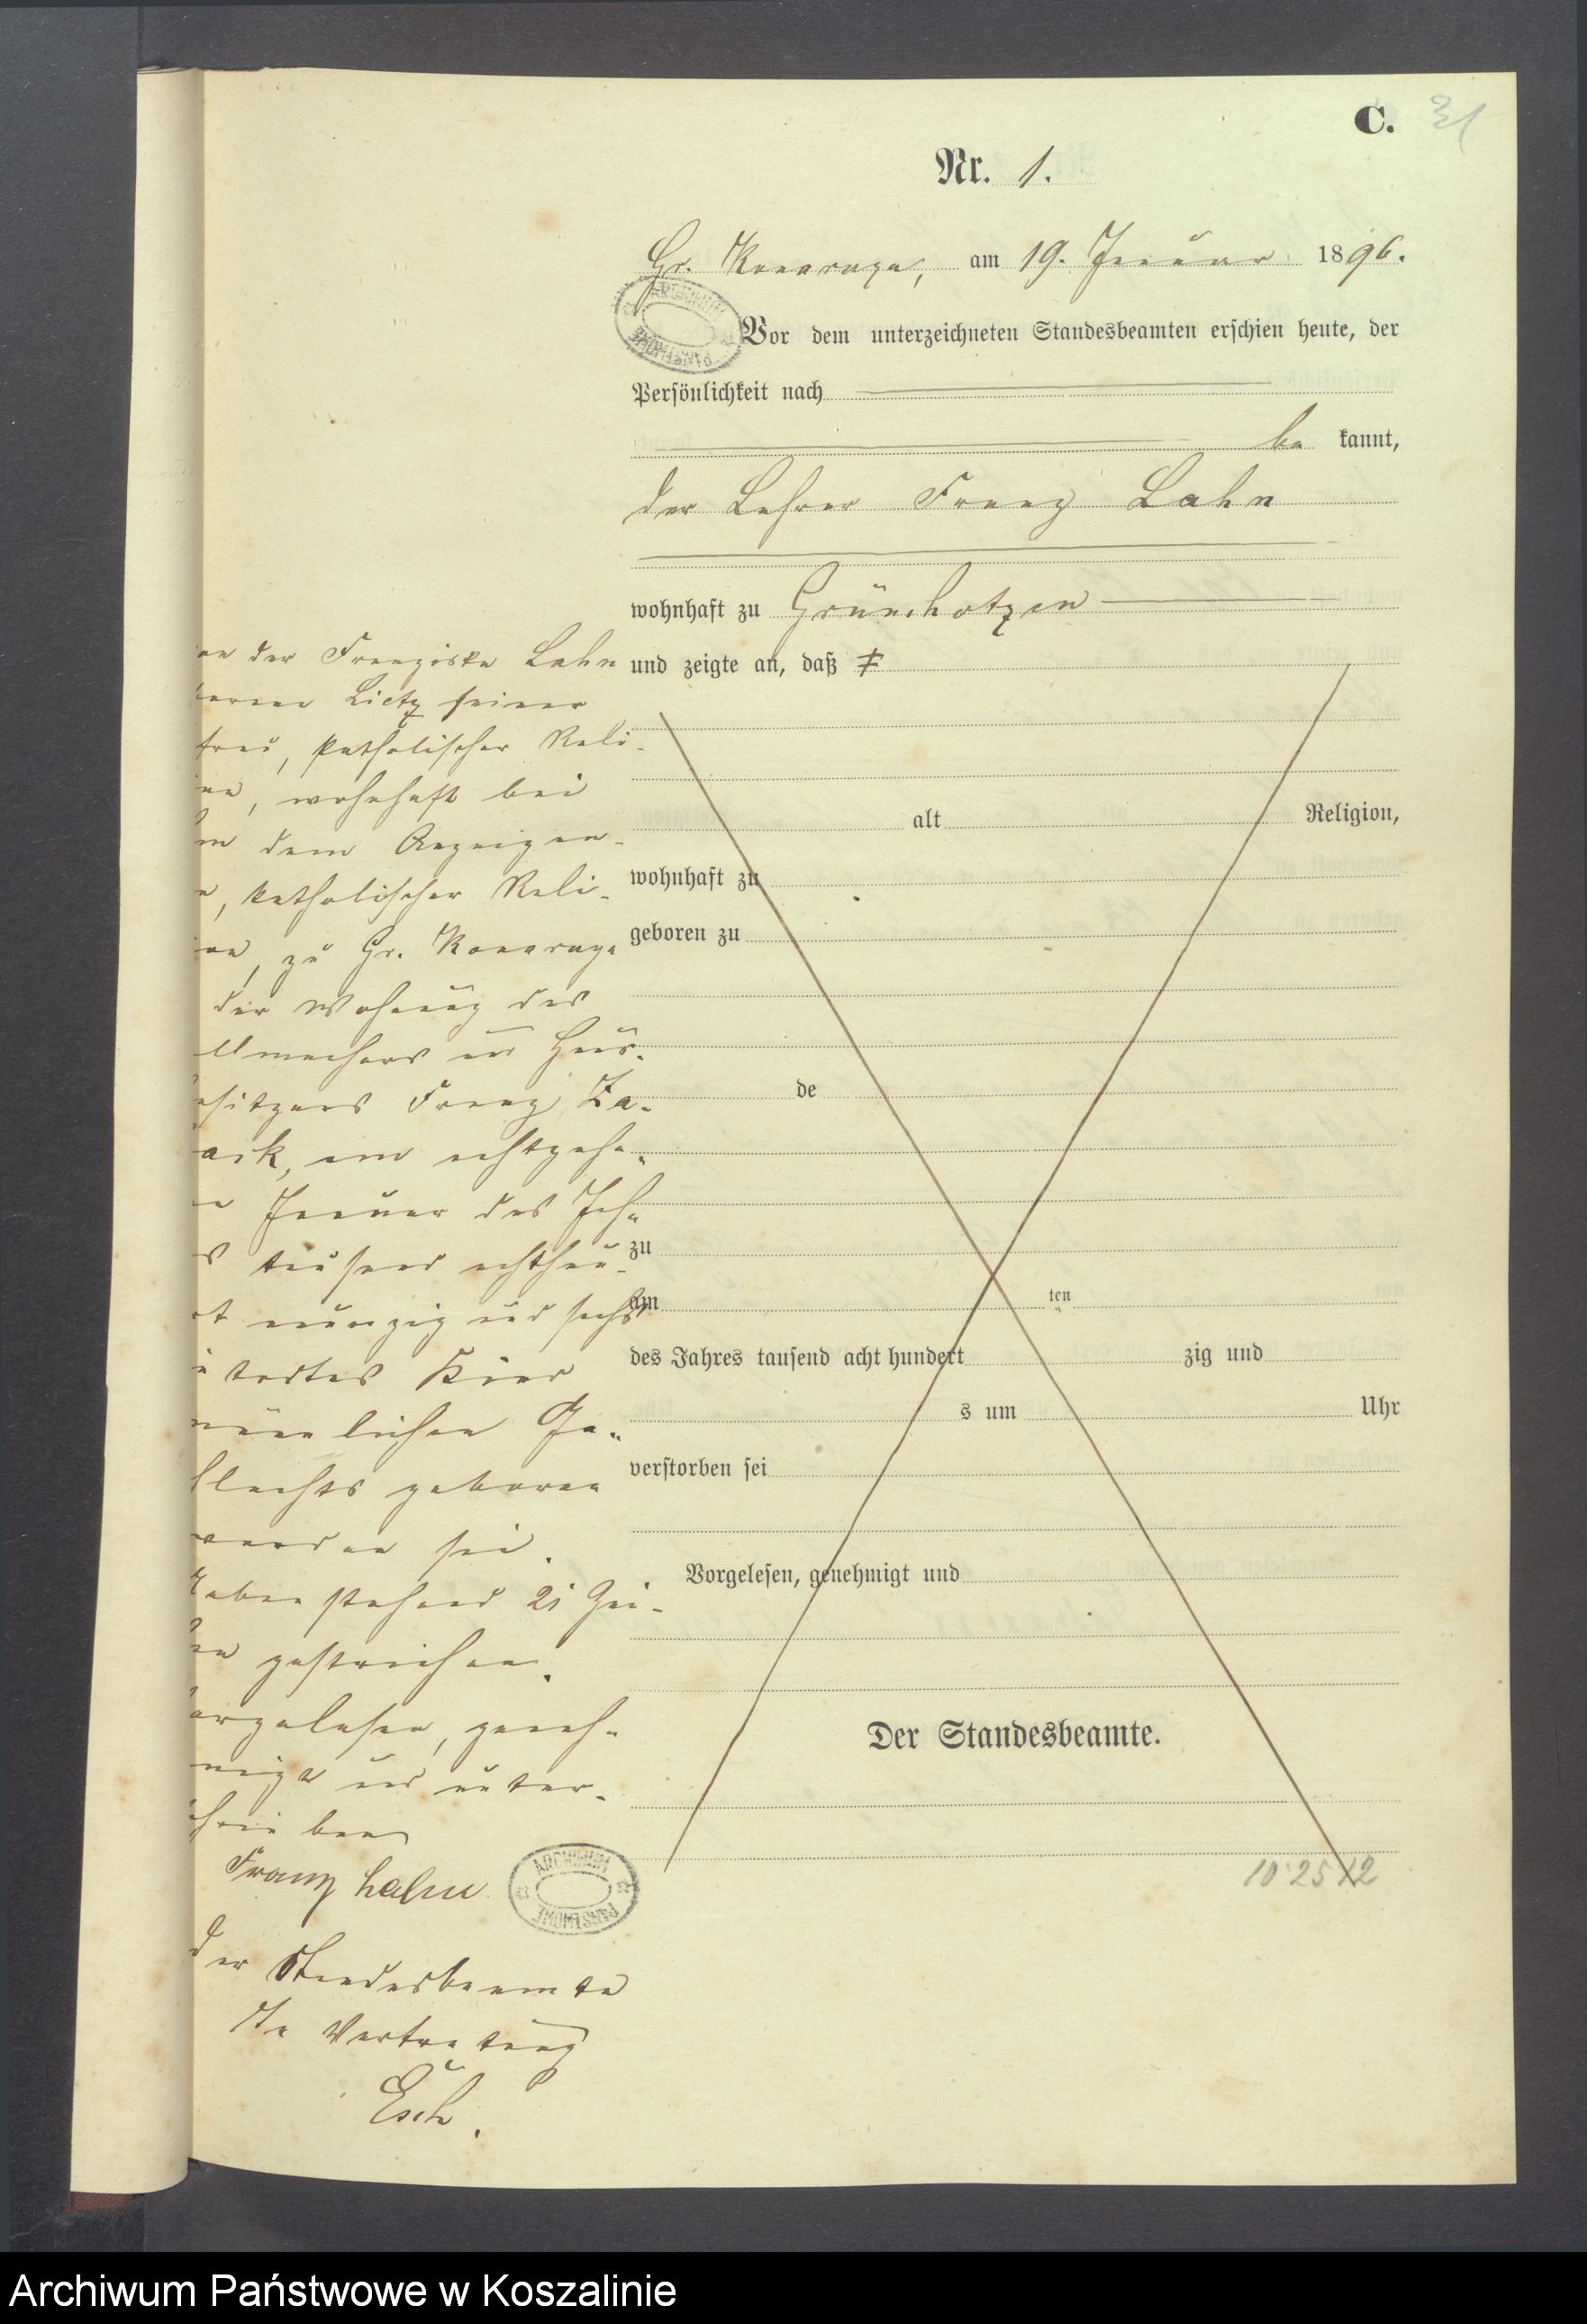 C. 31
Nr. 1.
Gr. Konarzyn, am 19. Januar 1896.
Vor dem unterzeichneten Standesbeamten erschien heute, der
Persönlichkeit nach
be kannt,
der Lehrer Franz Lahn
wohnhaft zu Grünchotzen
und zeigte an, daß
alt Religion,
wohnhaft zu
geboren zu
de
zu
am ten
des Jahres tausend acht hundert zig und
s um Uhr
verstorben sei
Vorgelesen, genehmigt und
Der Standesbeamte.
10 25 12
on der Franziska Lahn
borene Lietz seiner
frau, katholischer Reli-
on, wohnhaft bei
hm dem Anzeigen-
n, katholischer Reli-
on, zu Gr. Konarzyn
der Wohnung des
ellmachers und Haus-
esitzers Franz
am achtzehn-
n Januar des Jah-
s tausend achthun-
rt neunzig und sechs
todtes Kind
männlichen Ge-
hlechts geboren
worden sei.
neben stehend 21 Zei-
en gestrichen.
orgelesen, geneh-
migt und unter-
chrie ben
Franz Lahn
ARCHIWUM PAŃSTWOWE
der Standesbeamte
In Vertretung
Esch.
ARCHIWUM PAŃSTWOWE
Archiwum Państwowe w Koszalinie